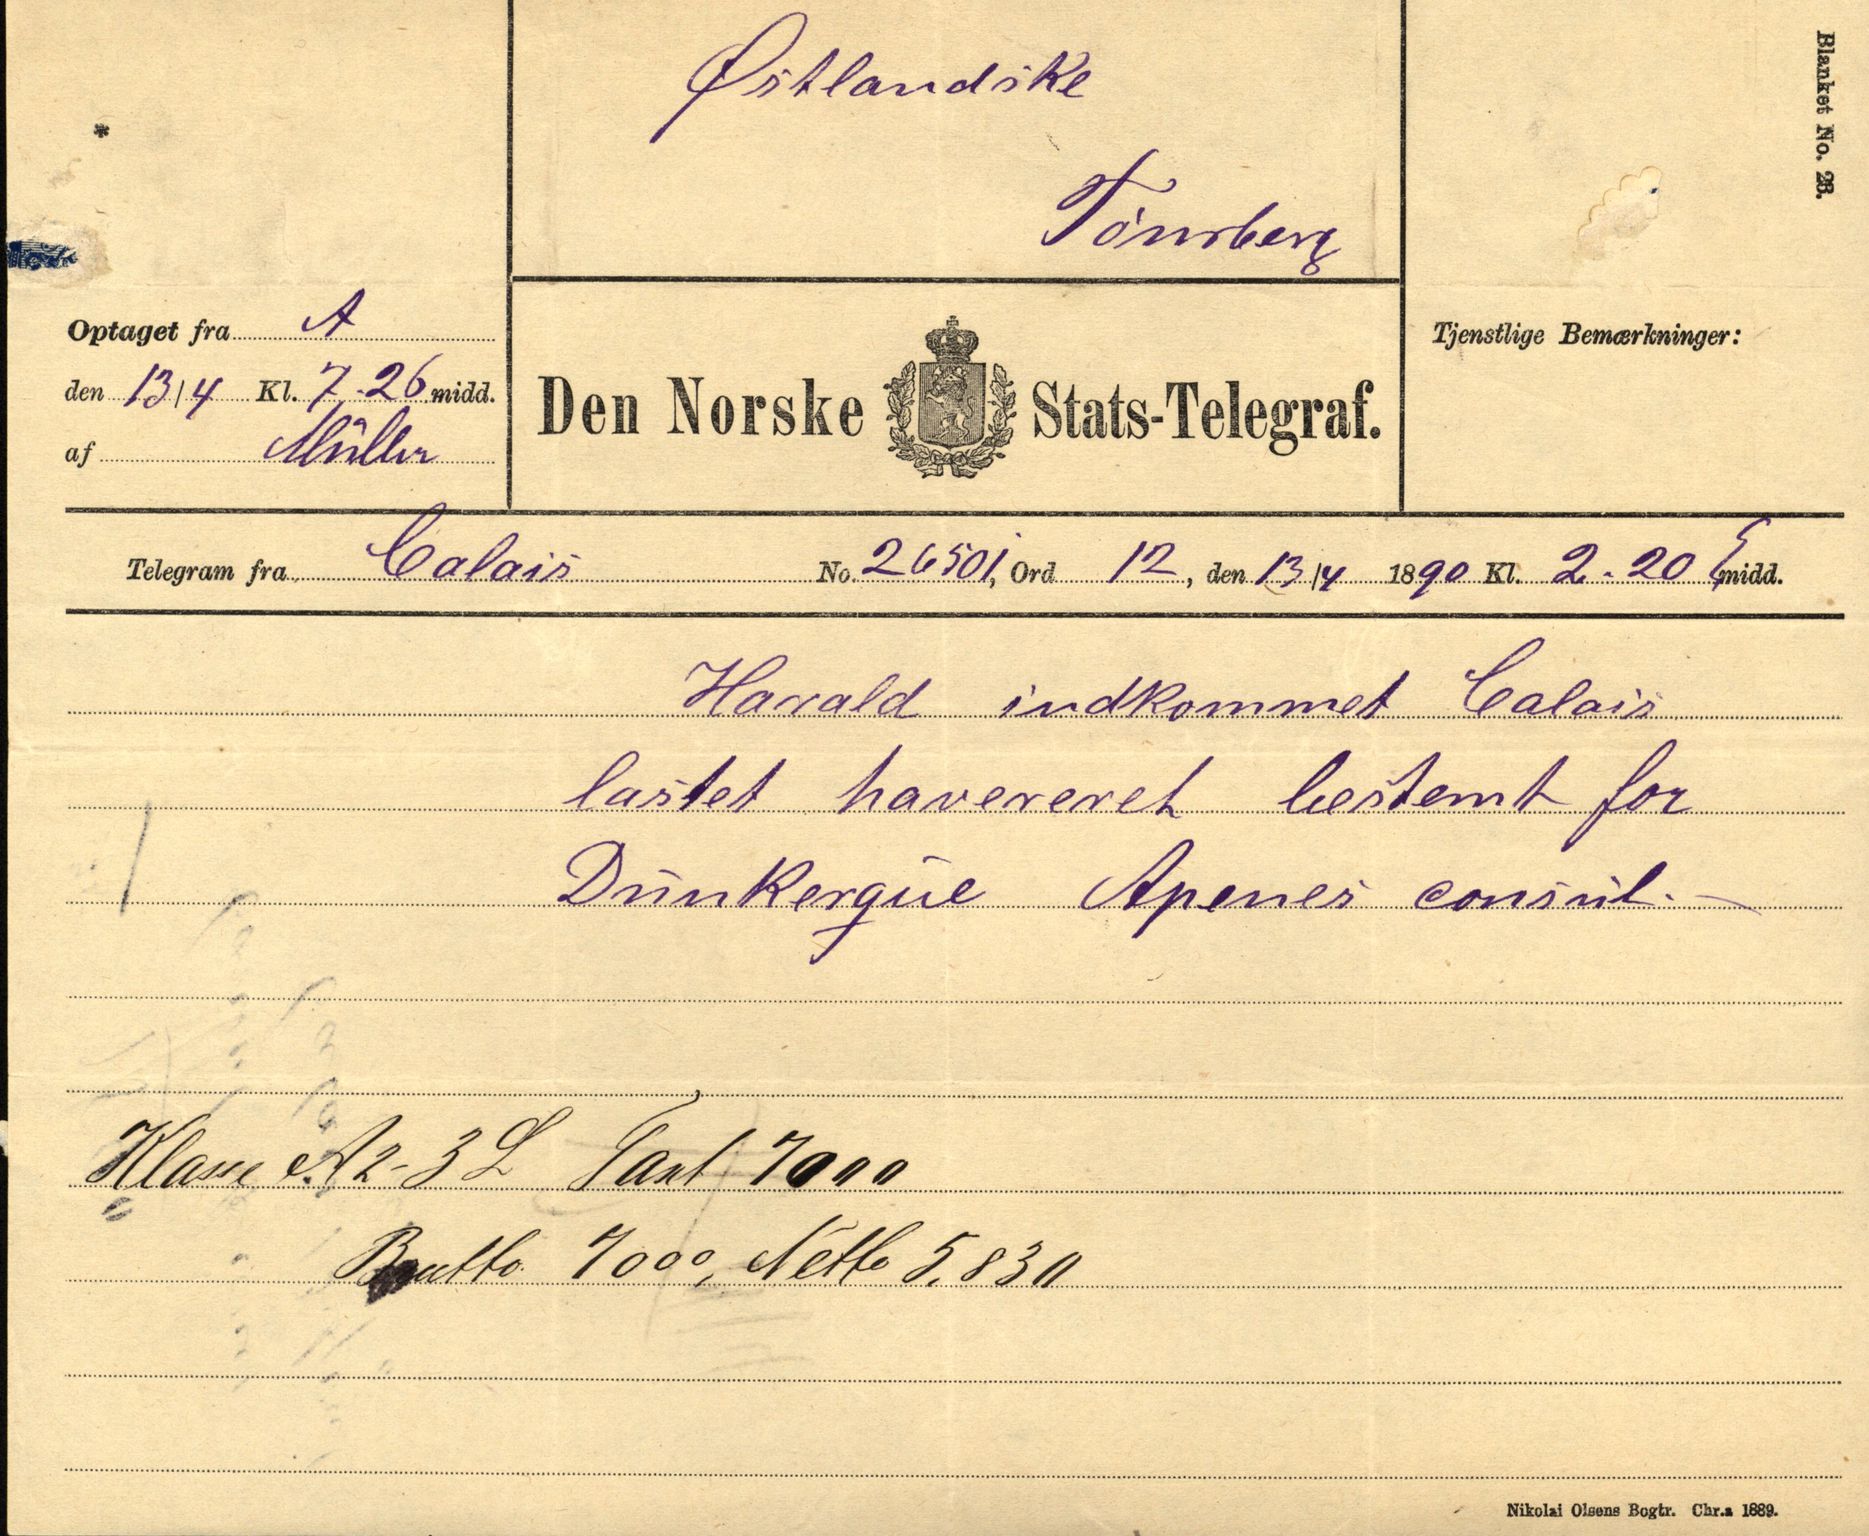 Blanket No. 28.
Østlandske
Tönsberg
Optaget fra A
den 13/4 Kl. 7-26 midd.
af Müller
Den Norske Stats-Telegraf.
Tjenstlige Bemærkninger:
Telegram fra Calais No. 26501, Ord 12, den 13/4 1890 Kl. 2-20 E midd.
Harald indkommet Calais
lastet havereret bestemt for
Dünkerqüe Apenes consül.-
Klasse A2-3 L Taxt 7000
Brutto 7000, Netto 5,830
Nikolai Olsens Bogtr. Chr.a 1889.